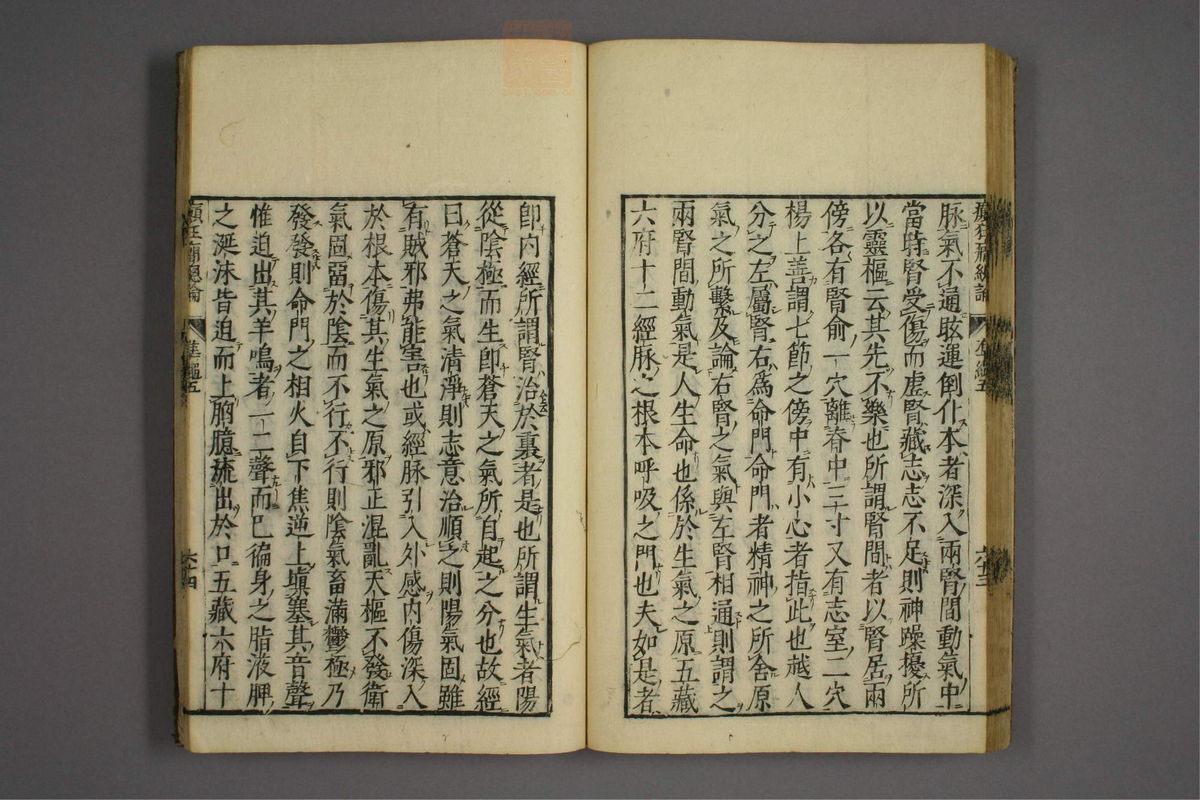 脉氣不通眩運倒仆本者深入兩腎間動氣中
當時腎受傷而虛腎藏志志不足則神躁擾所
以靈樞云其先不樂也所謂腎間者以腎居兩
傍各有腎俞一穴離脊中三寸又有志室二穴
楊上善謂七節之傍中有小心者指此也越人
分之左屬腎右爲命門命門者精神之所舍原
氣之所繫及論右腎之氣與左腎相通則謂之
兩腎間動氣是人生命也係於生氣之原五藏
六府十二經脉之根本呼吸之門也夫如是者
卽内經所謂腎治於裏者是也所謂生氣者陽
從陰極而生卽蒼天之氣所自起之分也故經
曰蒼天之氣清淨則志意治順之則陽氣固雖
有賊邪弗能害也或經脉引入外感内傷深入
於根本傷其生氣之原邪正混亂天樞不發衛
氣固畱於陰而不行不行則陰氣畜滿鬱極乃
發發則命門之相火自下焦逆上塡塞其音聲
惟迫出其羊鳴者一二聲而已徧身之脂液脾
之涎沫皆迫而上胷臆琉出於口五藏六府十
六十四